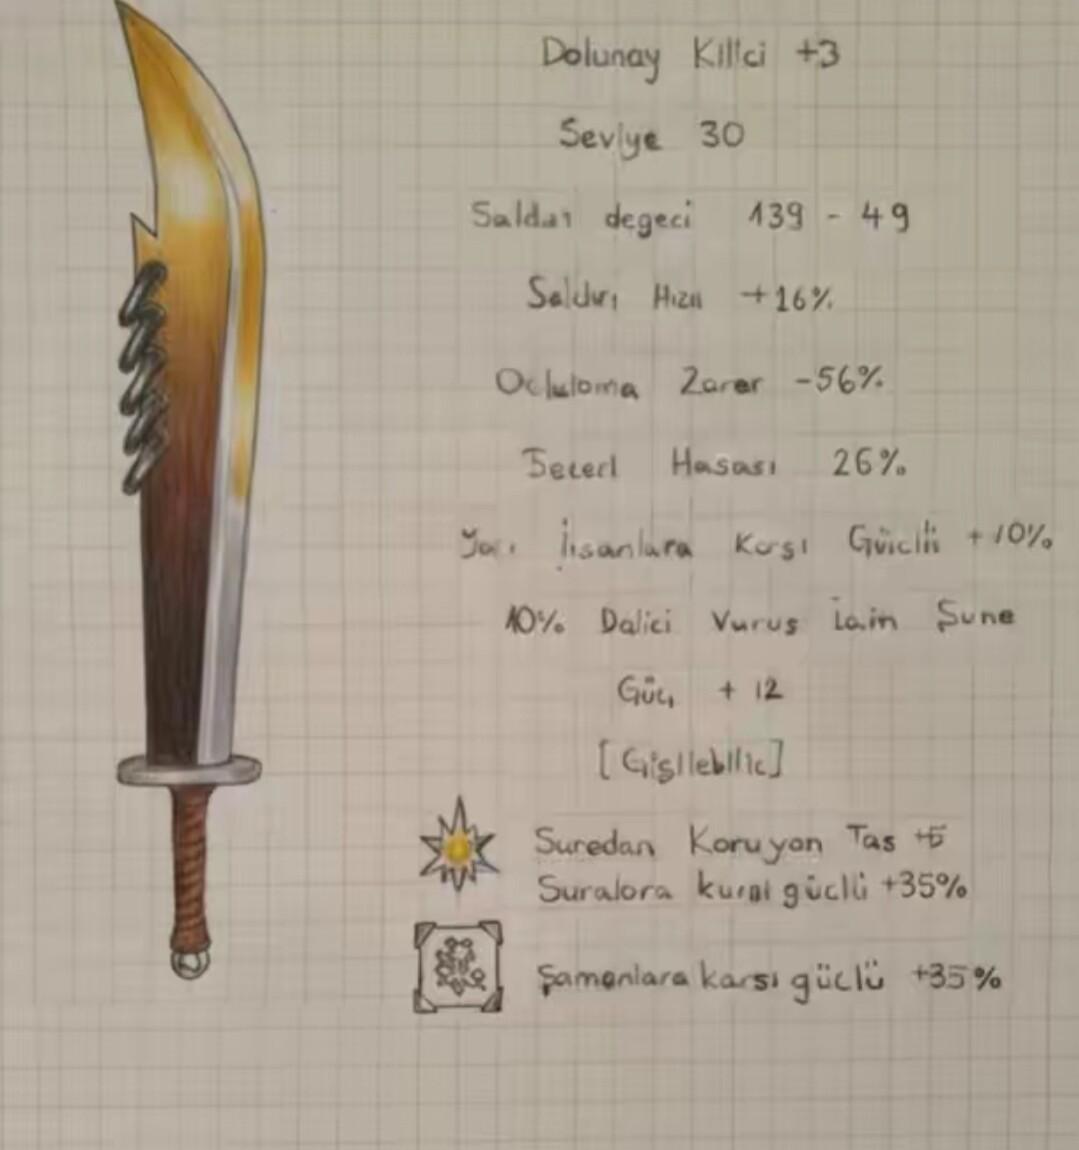 Dolunay Kıl!ci +3
Sevlye 30
Saldırı degeci 139 - 49
Saldırı Hızıı +16%
Ocluloma Zarer -56%
Becerl Hasası 26%
İısanlara Karşı Güiclli +10%
10% Dalici Vurus Şune
Güç + 12
[Gişllebllic]
Suredan Koruyon Tas +6
Suralora kuraı güclü +35%
Şamonlara karsı güclü +35%